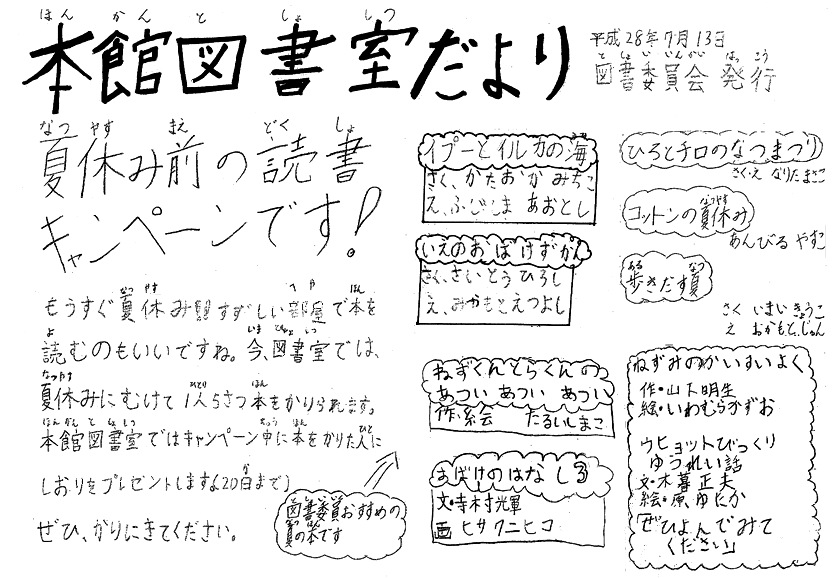 本館図書室だより
平成28年7月13日
図書委員会 発行
夏休み前の読書
キャンペーンです!
もうすぐ夏休み すずしい部屋で本を
読むのもいいですね。今、図書室では、
夏休みにむけて1人5さつ本をかりられます。
本館図書室ではキャンペーン中に本をかりた人に
しおりをプレゼントします(20日まで)
ぜひ、かりにきてください。
図書委員おすすめの
夏の本です
イプーとイルカの海
さく、かたおか みちこ
え、ふじしま あおとし
いえのおばけずかん
さく、さいとう ひろし
え、みやもとえつよし
ねずくんとらくんの
あつい あつい あつい
作・絵 たるいしまこ
おばけのはなし3
文・寺村光軍
画 ヒサクニヒコ
ひろとチロのなつまつり
さく・え なりたまさこ
コットンの夏休み
あんびる やすこ
歩きだす夏
さく いまい きょうこ
え おかもと、じゅん
ねずみのかいすいよく
作・山下明生
絵・いわむらかずお
ウヒョットびっくり
ゆうれい話
文・木暮正夫
絵・原、ゆたか
「ぜひよんでみて
ください」